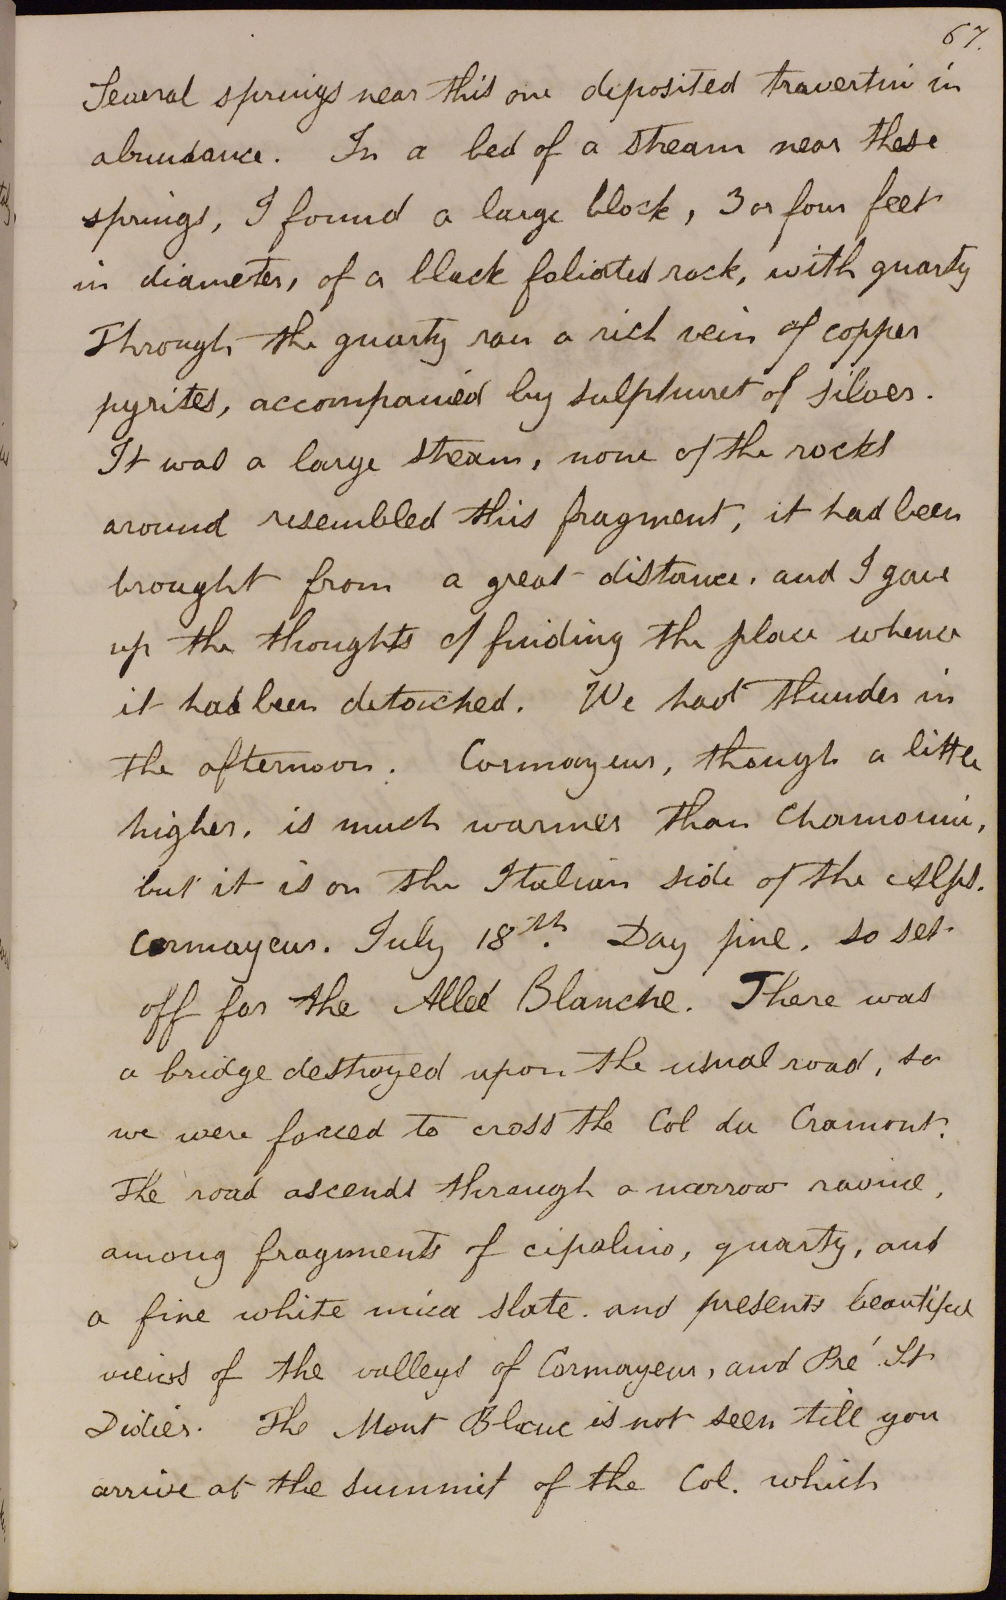 67.
Several springs near this one deposited travertin in
abundance. In a bed of a stream near these
springs, I found a large block, 3 or four feet
in diameter, of a black foliated rock, with quartz
Through the quartz ran a rich vein of copper
pyrites, accompanied by sulphuret of silver.
It was a large stream, none of the rocks
around resembled this fragment, it had been
brought from a great distance, and I gave
up the thoughts of finding the place whence
it had been detached. We had thunder in
the afternoon. Cormayeur, though a little
higher, is much warmer than Chamouni,
but it is on the Italian side of the Alps.
Cormayeur. July 18th. Day fine, so set
off for the Allee Blanche. There was
a bridge destroyed upon the usual road, so
we were forced to cross the Col du Cramont.
The road ascends through a narrow ravine,
among fragments of cipolino, quartz, and
a fine white mica slate. and presents beautiful
views of the valleys of Cormayeur, and Pré St
Didier. The Mont Blanc is not seen till you
arrive at the summit of the Col. which